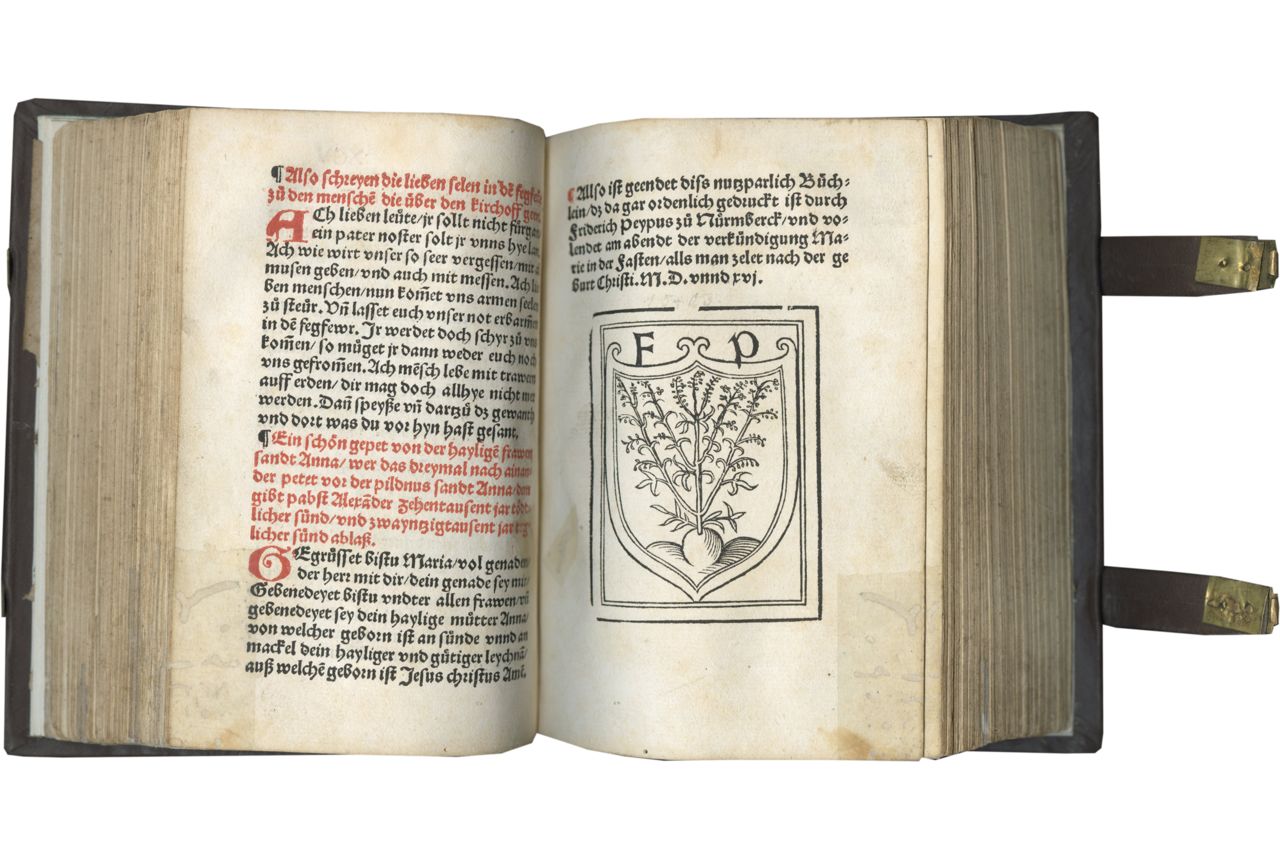 ¶ Also schreyen die lieben selen in dē fegfeür
zů den menschē die über den kirchoff geen.
ACh lieben leüte/jr sollt nicht fürgan/
ein pater noster solt jr vnns hye lan.
Ach wie wirt vnser so seer vergessen/mit al
musen geben/vnd auch mit messen. Ach lie
ben menschen/nun kom̄et vns armen seelen
zů steür. Vn̄ lasset euch vnser not erbarm̄en
in dē fegfewr. Jr werdet doch schyr zů vns
kom̄en/so můget jr dann weder euch noch
vns gefrom̄en. Ach mēsch lebe mit trawern
auff erden/dir mag doch allhye nicht mer
werden. Dan̄ speyße vn̄ dartzů dz gewanth
vnd dort was du vor hyn hast gesant.
¶ Ein schön gepet von der hayligē frawen
sandt Anna/wer das dreymal nach ainan
der petet vor der pildnus sandt Anna/dem
gibt pabst Alexāder zehentausent jar tödt
licher sünd/vnd zwayntzigtausent jar teg
licher sünd ablaß.
GEgrüsset bistu Maria/vol genaden
der herr mit dir/dein genade sey mit
Gebenedeyet bistu vndter allen frawen/vn̄
gebenedeyet sey dein haylige můtter Anna/
von welcher geborn ist an sünde vnnd an
mackel dein hayliger vnd gůtiger leychnā/
auß welchē geborn ist Jesus christus Amē.
¶ Allso ist geendet diss nutzparlich Büch-
lein/dz da gar ordenlich gedruckt ist durch
Friderich Peypus zů Nürmberck/vnd vo-
lendet am abendt der verkündigung Ma-
rie in der Fasten/alls man zelet nach der ge
burt Christi. M. D. vnnd xvj.
F P